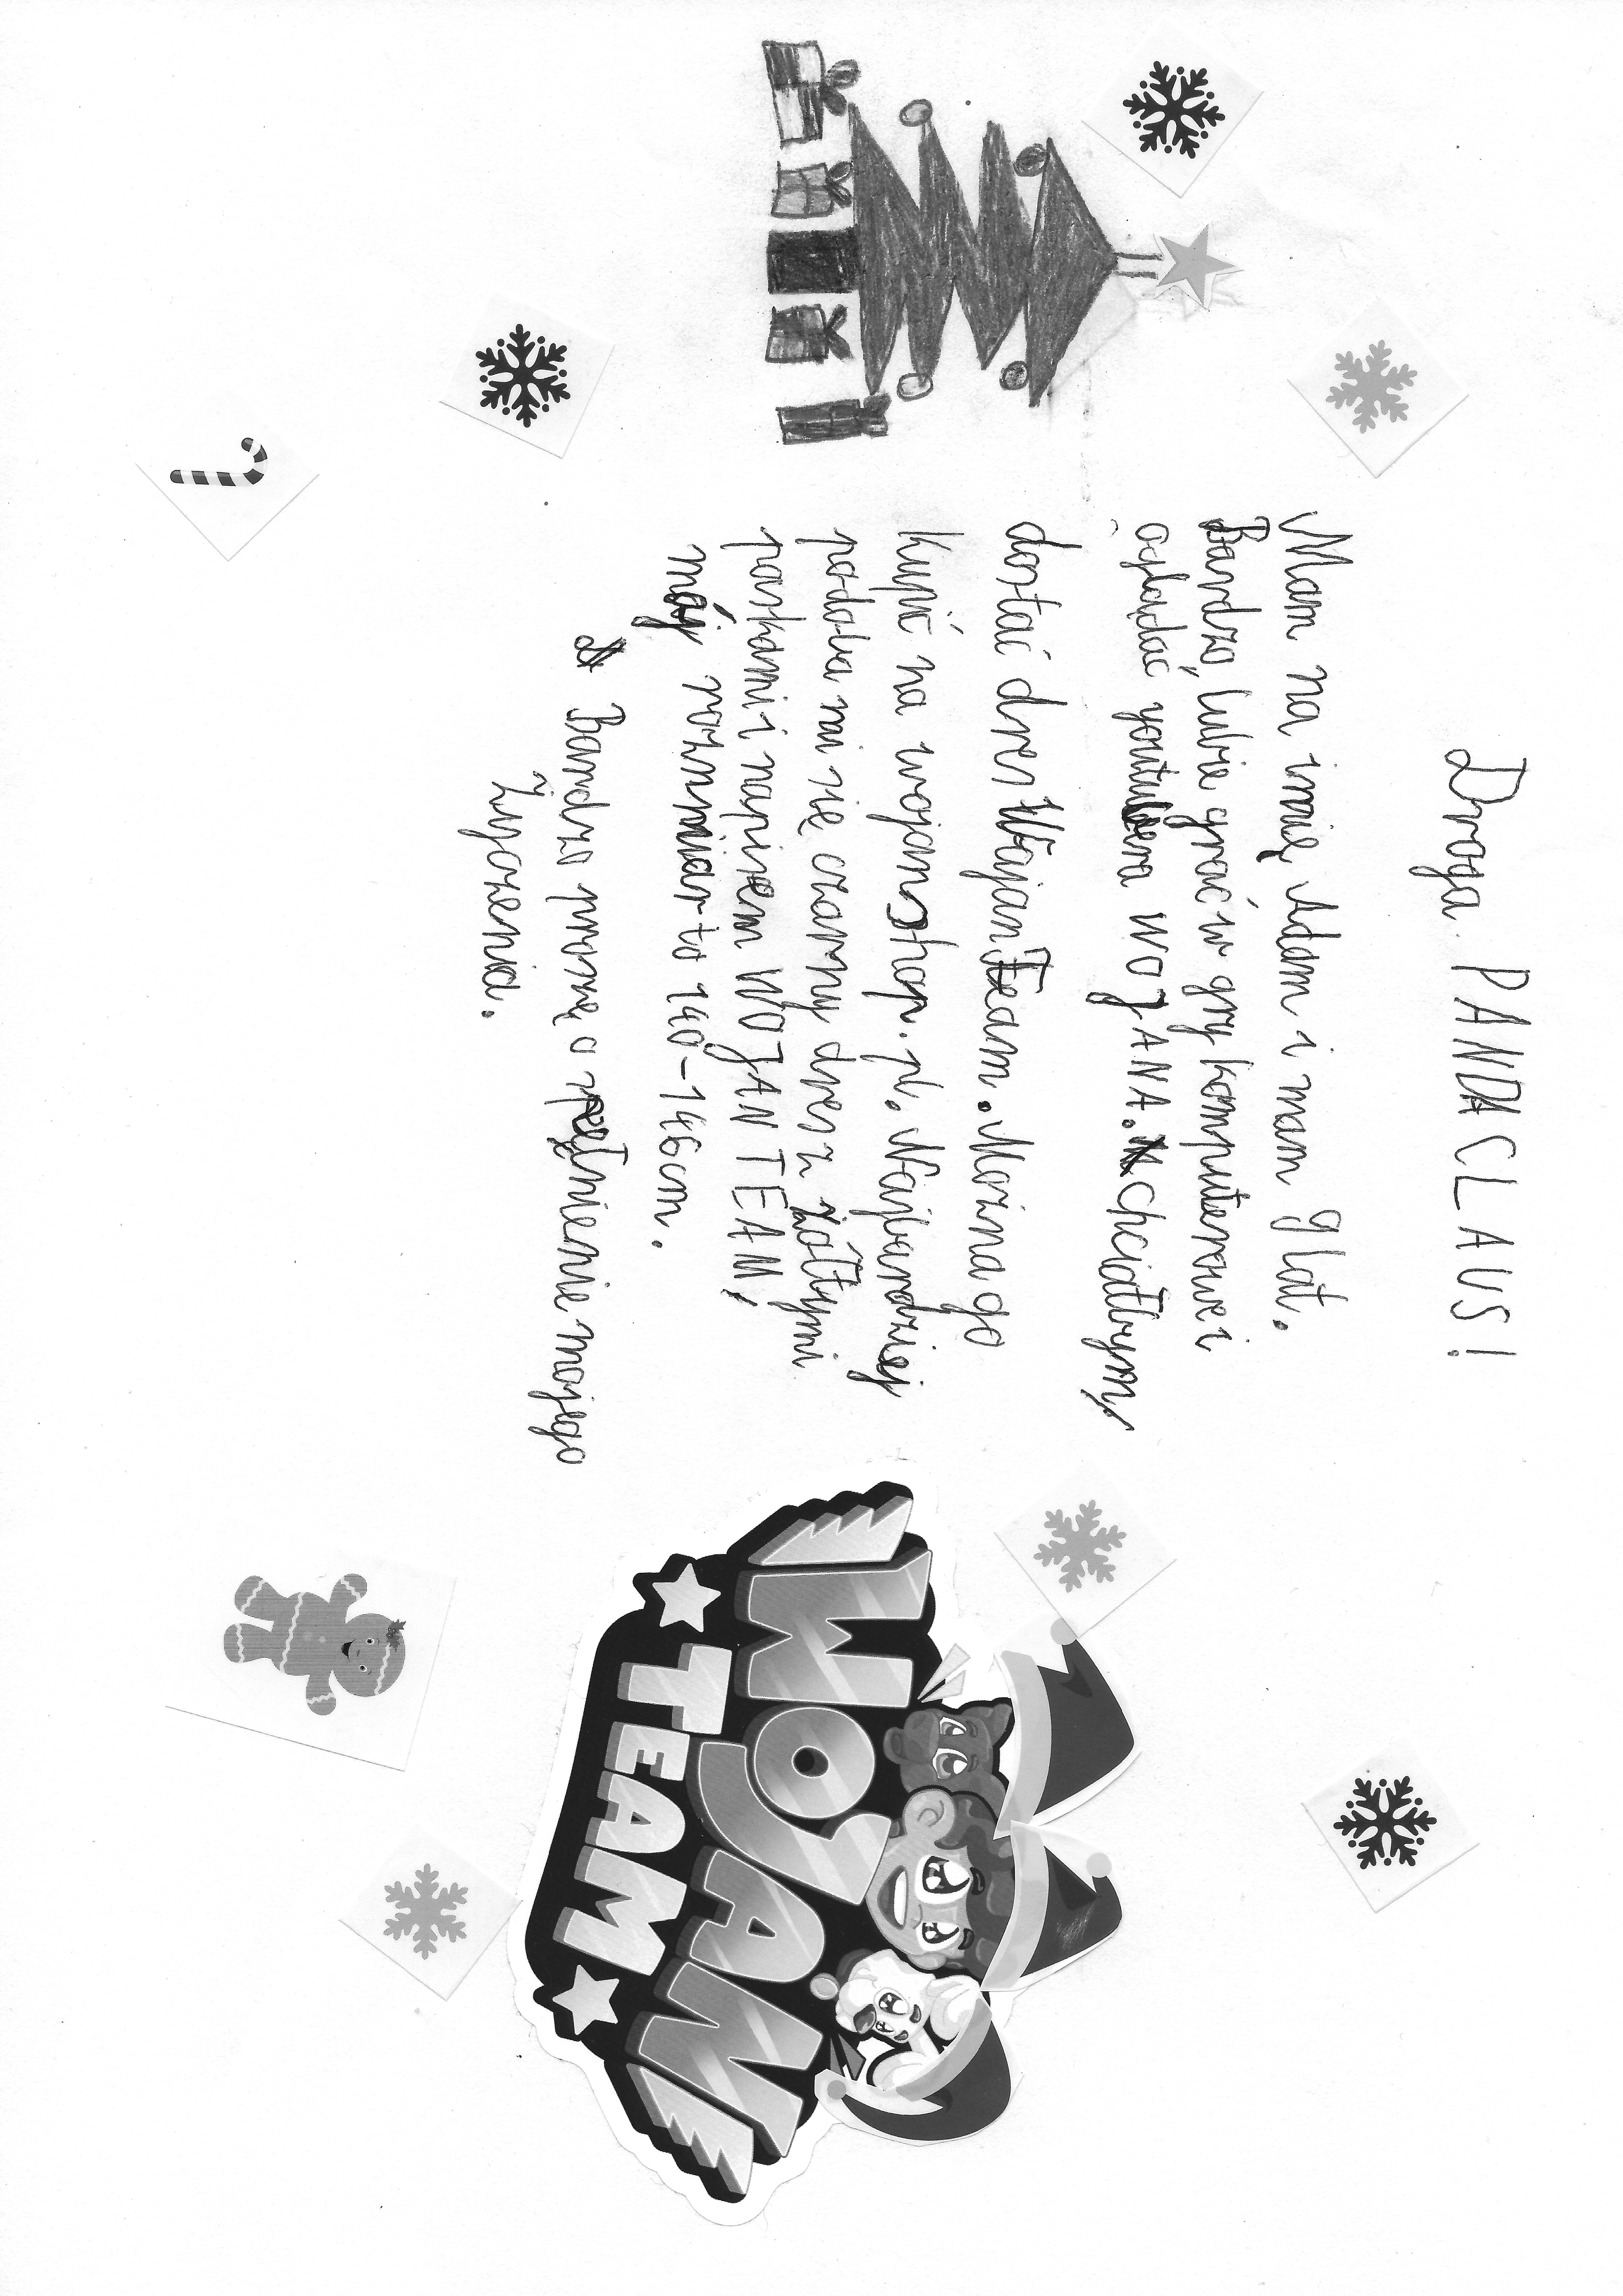 Droga PANDA CLAUS!
Mam na imię Adam i mam 9 lat.
Bardzo lubię grać w gry komputerowe i
oglądać youtubera WOJANA. Chciałbym
dostać dres WojanTeam. Można go
kupić na wojanshop.pl. Najbardziej
podoba mi się czarny dres z żółtymi
paskami i napisem WOJAN TEAM,
mój rozmiar to 140-146cm.
Bardzo proszę o spełnienie mojego
życzenia.
WOJAN
TEAM